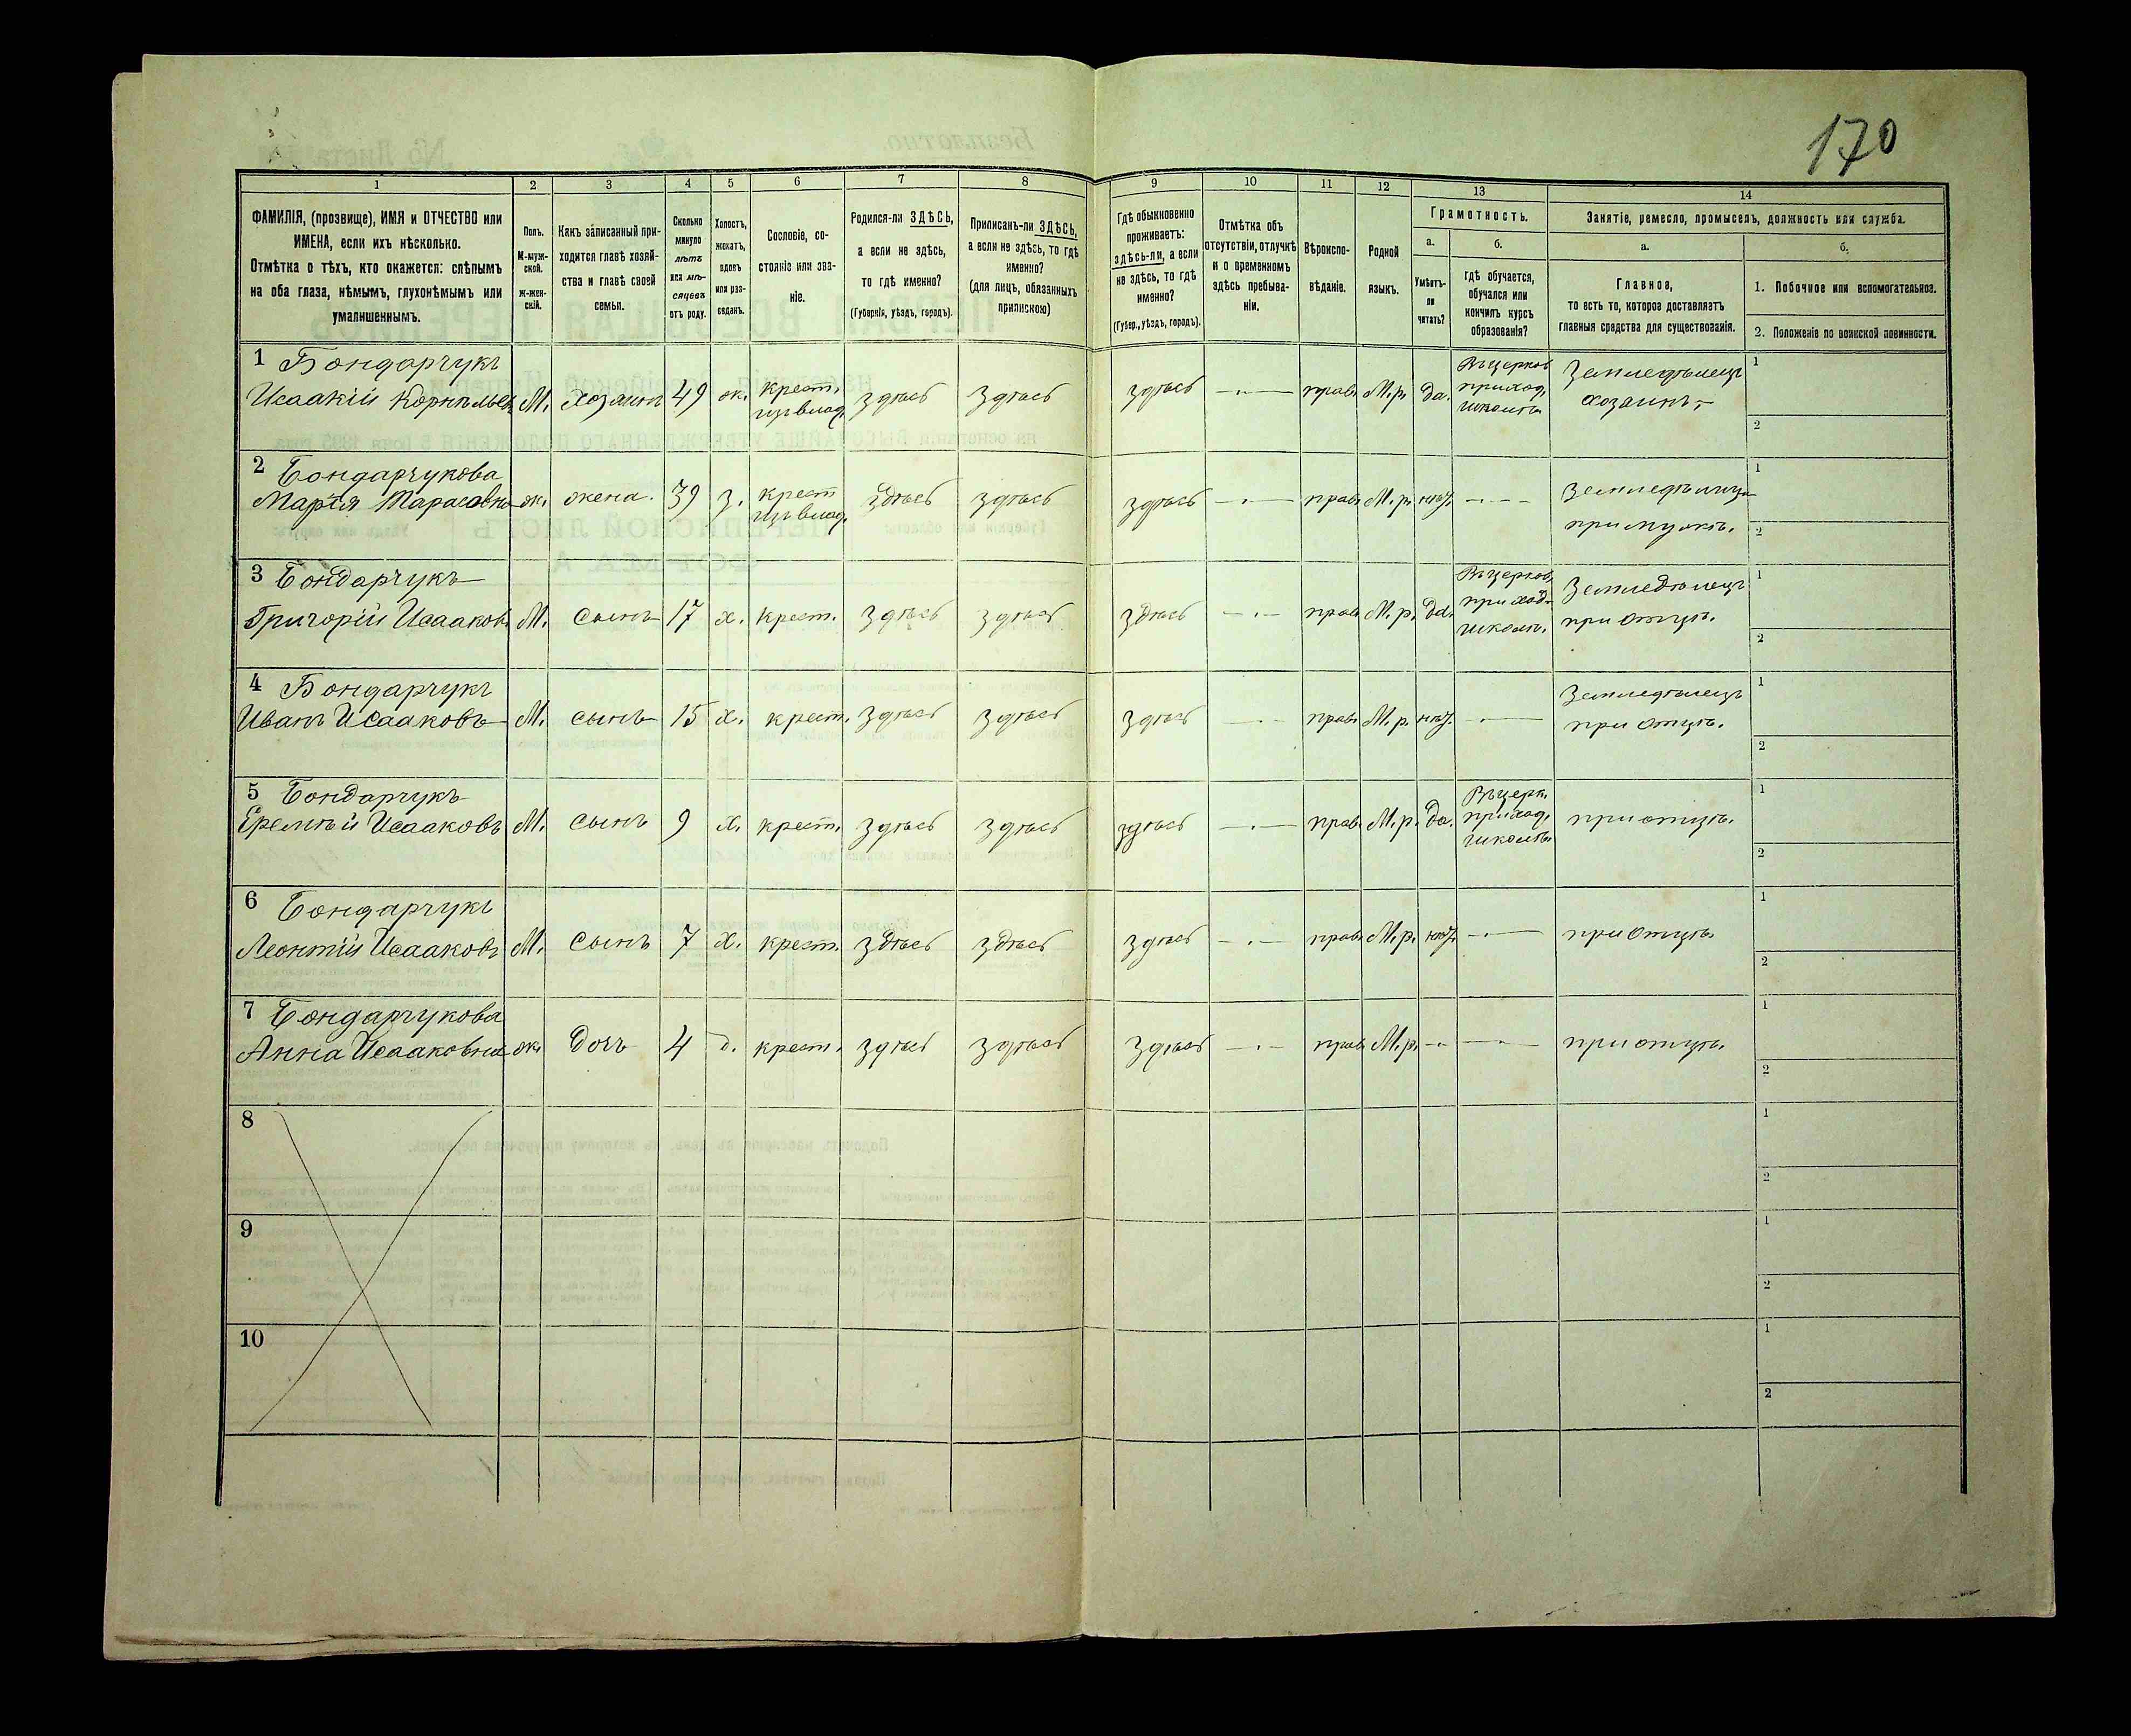 170
1 2 3 4 5 6 7 8 9 10 11 12 13 14
ФАМИЛІЯ, (прозвище), ИМЯ и ОТЧЕСТВО или
ИМЕНА, если ихъ нѣсколько.
Отмѣтка о тѣхъ, кто окажется: слѣпымъ
на оба глаза, нѣмымъ, глухонѣмымъ или
умалишеннымъ.
Полъ.
М-муж-
ской.
Ж-жен-
скій.
Какъ записанный при-
ходится главѣ хозяй-
ства и главѣ своей
семьи.
Сколько
минуло
лѣтъ
или мѣ-
сяцевъ
отъ роду.
Холостъ,
женатъ,
вдовъ
или раз-
веданъ.
Сословіе, со-
стояніе или зва-
ніе.
Родился-ли ЗДѢСЬ,
а если не здѣсь,
то гдѣ именно?
(Губернія, уѣздъ, городъ).
Приписанъ-ли ЗДѢСЬ,
а если не здѣсь, то гдѣ
именно?
(для лицъ, обязанныхъ
припискою)
Гдѣ обыкновенно
проживаетъ:
здѣсь-ли, а если
не здѣсь, то гдѣ
именно?
(Губер., уѣздъ, городъ).
Отмѣтка объ
отсутствіи, отлучкѣ
и о временномъ
здѣсь пребыва-
ніи.
Вѣроиспо-
вѣданіе.
Родной
языкъ.
Грамотность.
а.
Умѣетъ-
ли
читать?
б.
гдѣ обучается,
обучался или
кончилъ курсъ
образованія?
Занятіе, ремесло, промыселъ, должность или служба.
а.
Главное,
то есть то, которое доставляетъ
главныя средства для существованія.
б.
1. Побочное или вспомогательное.
2. Положеніе по воинской повинности.
1 Бондарчукъ
Исаакій Корнильев М. хозяинъ 49 ж. крест. изъ влад. здѣсь здѣсь здѣсь — · — прав. М.р. да. Въ церков. приход. школѣ Земледѣлецъ хозяинъ 1 2
2 Бондарчукова
Марія Тарасовна ж. жена. 39 з. крест изъ влад. здѣсь здѣсь здѣсь — · — прав. М.р. нѣт. — · — Земледѣлица при мужѣ. 1 2
3 Бондарчукъ
Григорій Исааковъ М. сынъ 17 х. крест. здѣсь здѣсь здѣсь — · — прав. М.р. да. Въ церков. приход. школѣ. Земледѣлецъ при отцѣ. 1 2
4 Бондарчукъ
Иванъ Исааковъ М. сынъ 15 х. крест. здѣсь здѣсь здѣсь — · — прав. М.р. нѣт. — · — Земледѣлецъ при отцѣ. 1 2
5 Бондарчукъ
Еремѣй Исааковъ М. сынъ 9 х. крест. здѣсь здѣсь здѣсь — · — прав. М.р. да. Въ церк. приход. школѣ при отцѣ. 1 2
6 Бондарчукъ
Леонтій Исааковъ М. сынъ 7 х. крест. здѣсь здѣсь здѣсь — · — прав. М.р. нѣт. — · — при отцѣ. 1 2
7 Бондарчукова
Анна Исааковна ж. дочь 4 д. крест. здѣсь здѣсь здѣсь — · — прав. М.р. — · — — · — при отцѣ. 1 2
8 1 2
9 1 2
10 1 2